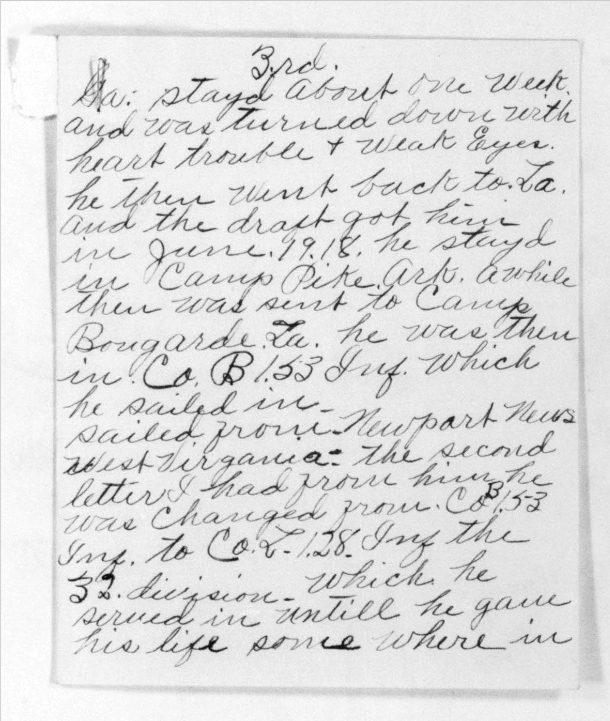 3.rd.
Ga: stayd about one week.
and was turned down with
heart trouble + weak Eyes.
he then went back to. La.
and the draft got him
in June. 19.18. he stayd
in Camp Pike. Ark. awhile
then was sent to Camp
Bougarde. La. he was then
in. Co. B 1.53 Inf. which
he sailed in-
sailed from- Newport News
West Virgania- the second
letter I had from him he
was changed from. Co B 1.53
Inf. to Co. L- 1.28. Inf the
32. division- which he
served in untill he gave
his life some where in